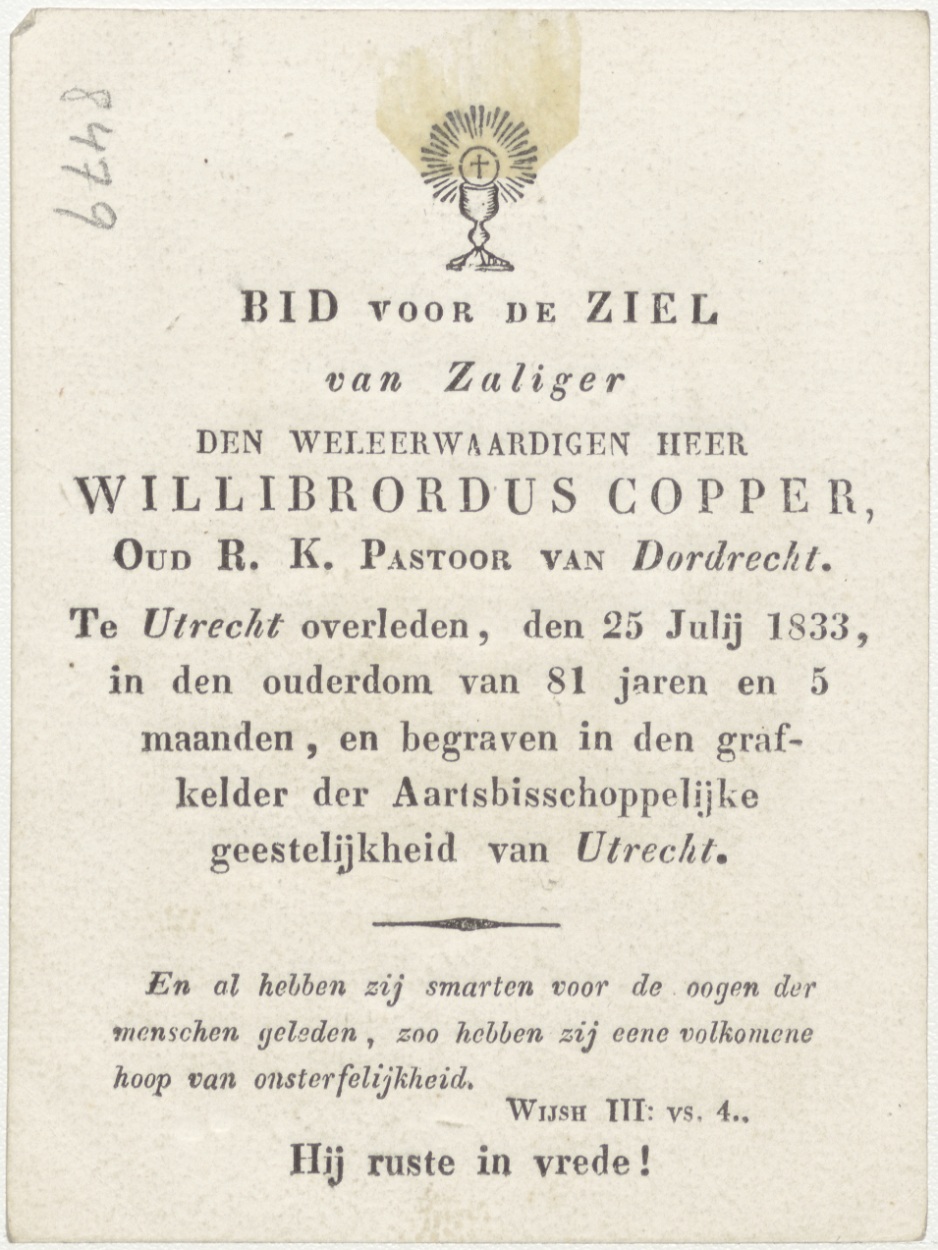 8479
BID VOOR DE ZIEL
van Zaliger
DEN WELEERWAARDIGEN HEER
WILLIBRORDUS COPPER,
OUD R. K. PASTOOR VAN Dordrecht.
Te Utrecht overleden, den 25 Julij 1833,
in den ouderdom van 81 jaren en 5
maanden, en begraven in den graf-
kelder der Aartsbisschoppelijke
geestelijkheid van Utrecht.
En al hebben zij smarten voor de oogen der
menschen geleden, zoo hebben zij eene volkomene
hoop van onsterfelijkheid.
WIJSH III: vs. 4..
Hij ruste in vrede!